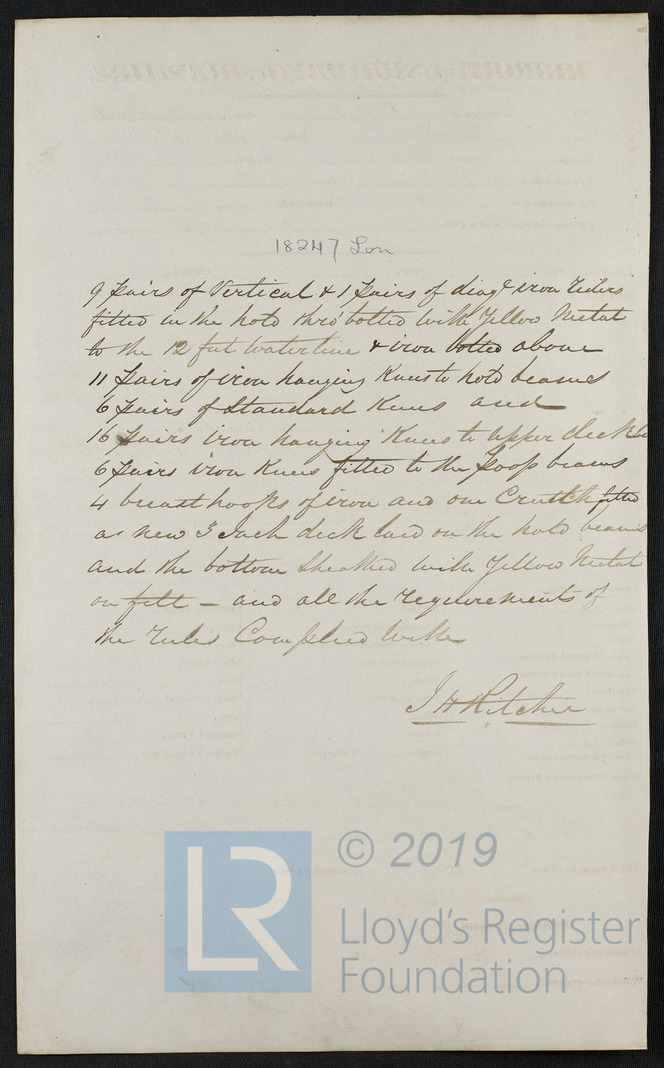 18247 Lon
9 pairs of Vertical & 1 pairs of diagl iron riders
fitted in the hold thro' bolted with Yellow Metal
to the 12 feet waterline & iron bolted above
11 pairs of iron hanging Knees to hold beams
6 pairs of Standard Knees and
16 pairs iron hanging Knees to upper deck
6 pairs iron Knees fitted to the Poop beams
4 breasthooks of iron and one Crutch fitted
a new 3 inch deck laid on the hold beams
and the bottom sheathed with Yellow Metal
on felt – and all the requirements of
the rules Complied with
J H Ritchie
LR
© 2019
Lloyd's Register
Foundation